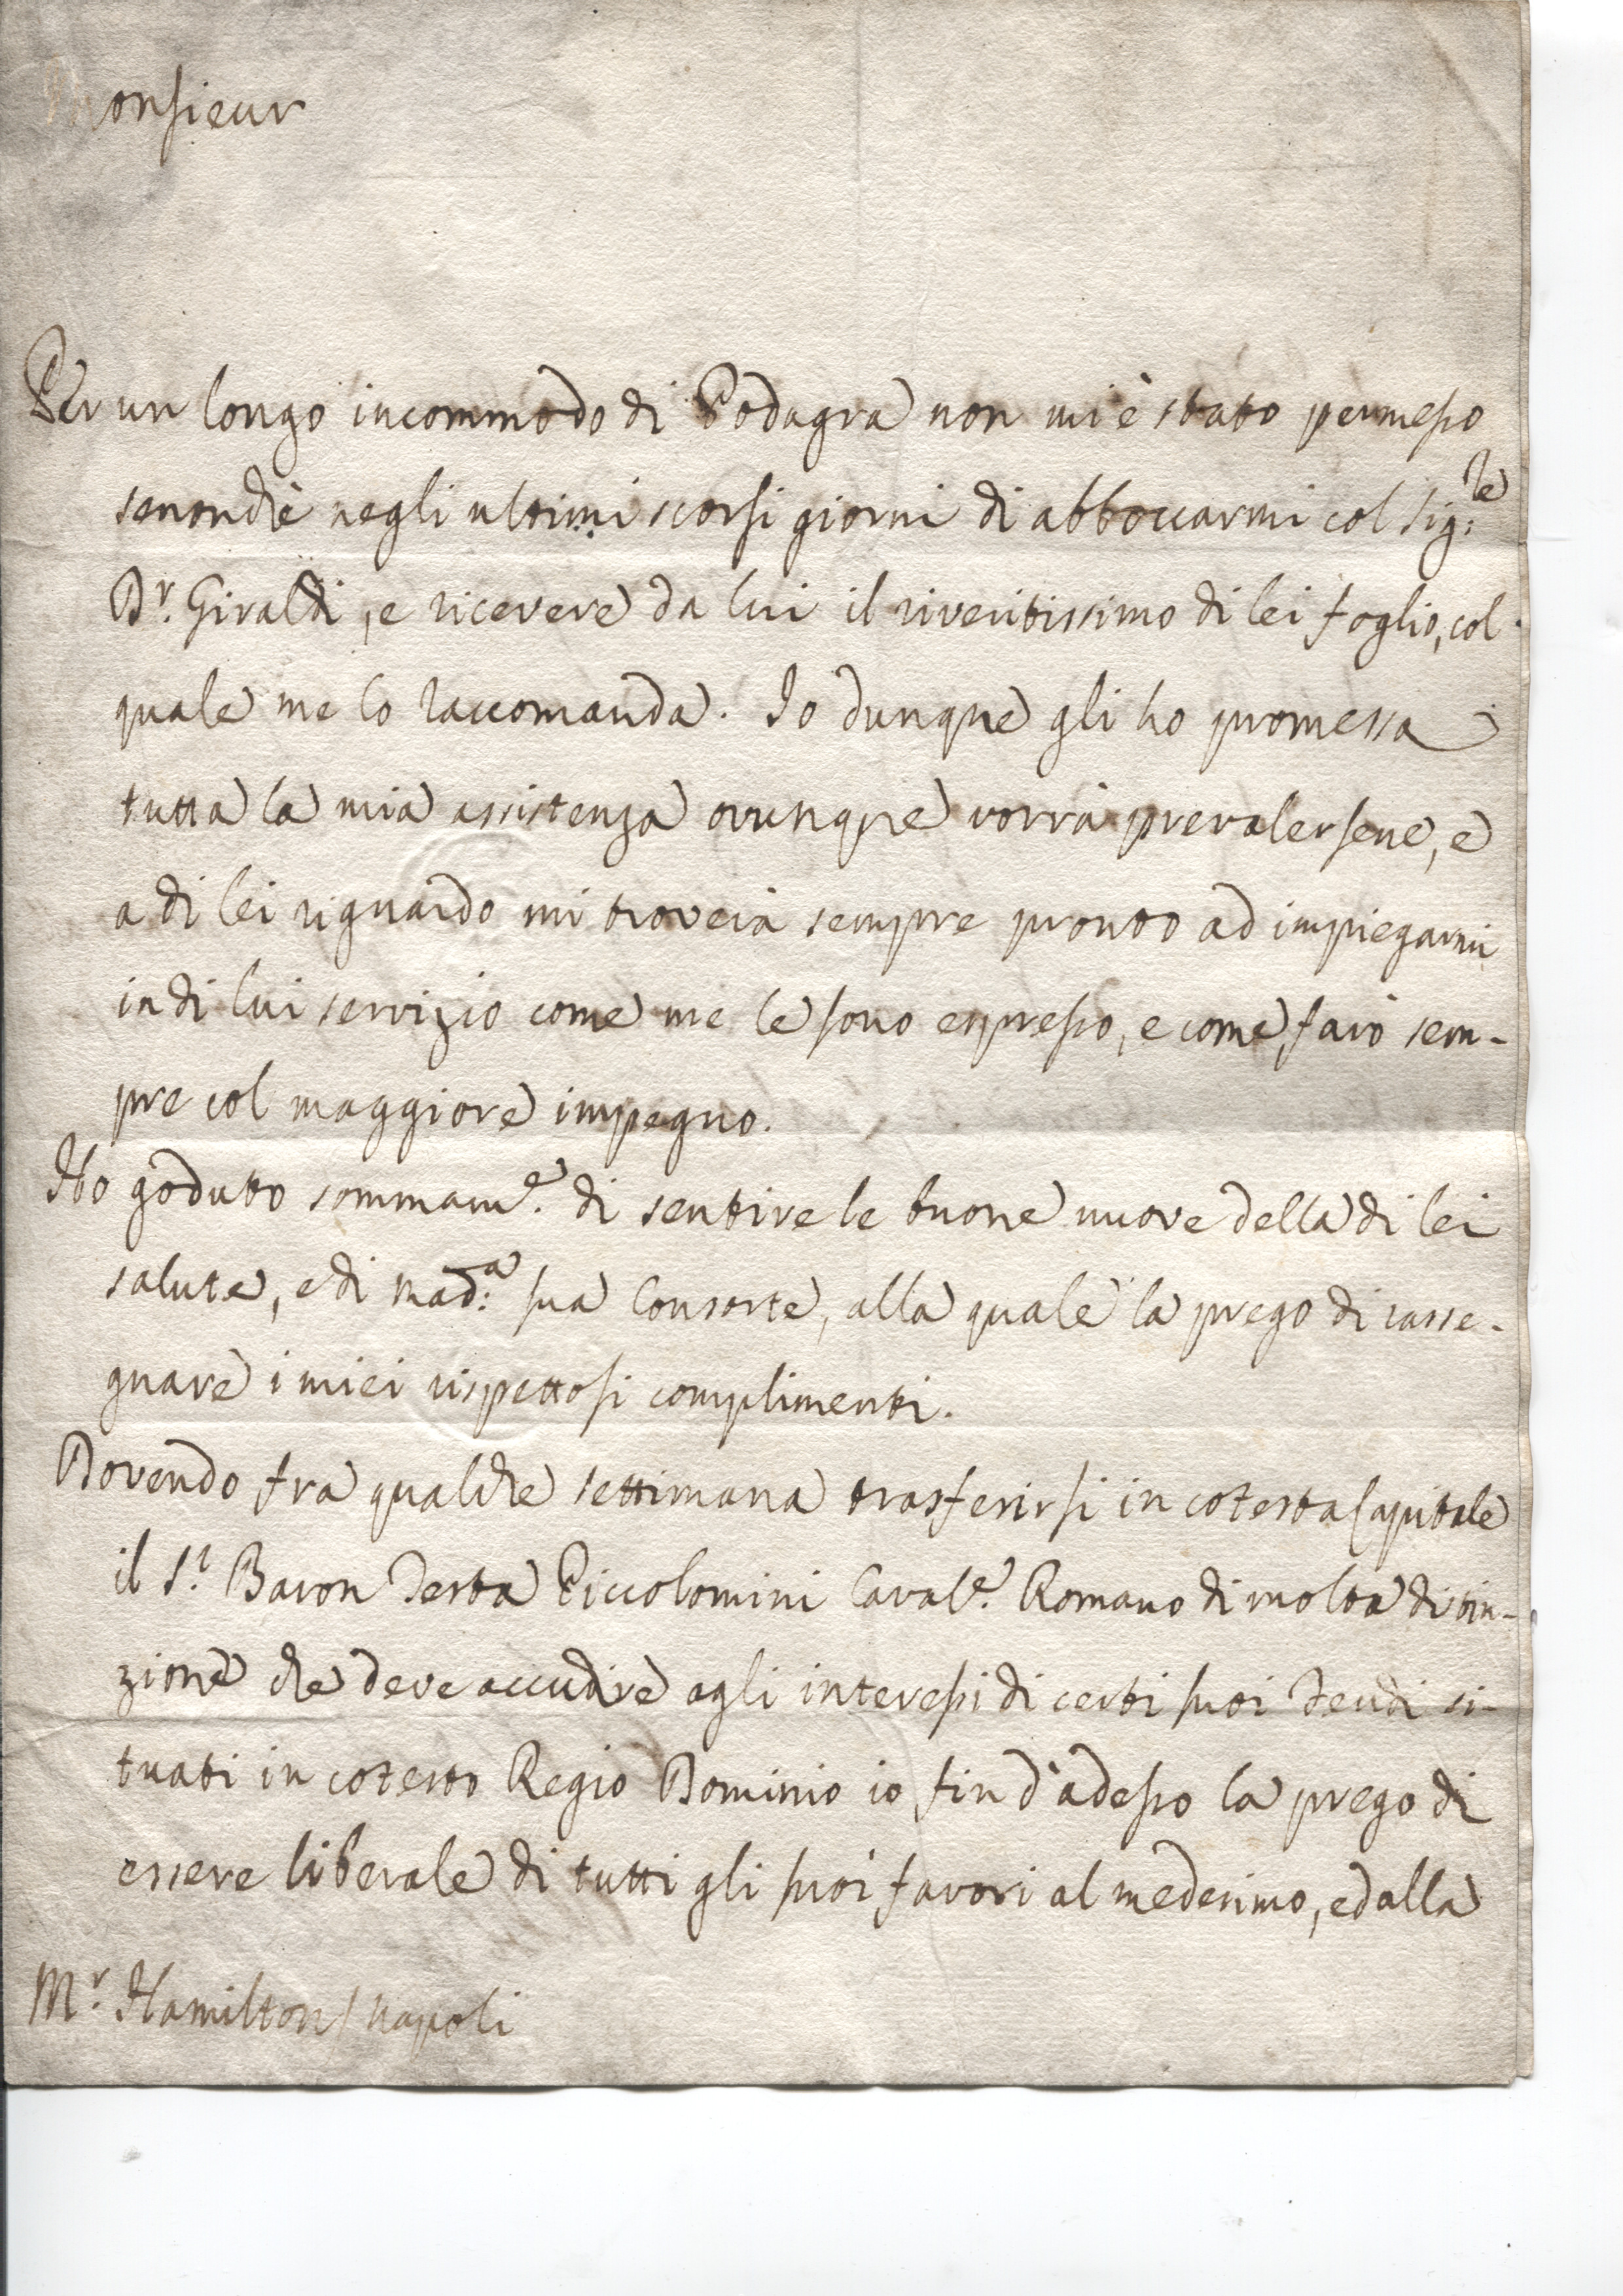 Monsieur
Per un longo incommodo di Podagra non mi è stato permesso
senonchè negli ultimi scorsi giorni di abboccarmi col Sig:re
Dr. Giraldi, e ricevere da lui il riveritissimo di lei foglio, col
quale me lo raccomanda. Io dunque gli ho promessa
tutta la mia assistenza ovunque vorrà prevalersene, e
a di lei riguardo mi troverà sempre pronto ad impiegarmi
in di lui servizio come me le sono espresso, e come farò sem-
pre col maggiore impegno.
Ho goduto sommame. di sentire le buone nuove della di lei
salute, e di Mad:a sua Consorte, alla quale la prego di rasse-
gnare i miei rispettosi complimenti.
Dovendo fra qualche settimana trasferirsi in cotesta Capitale
il Sr. Baron Testa Piccolomini Cavale. Romano di molta distin-
zione che deve accudire agli interessi di certi suoi Feudi si-
tuati in cotesto Regio Dominio io fin d'adesso la prego di
essere liberale di tutti gli suoi favori al medesimo, ed alla
Mr. Hamilton / Napoli